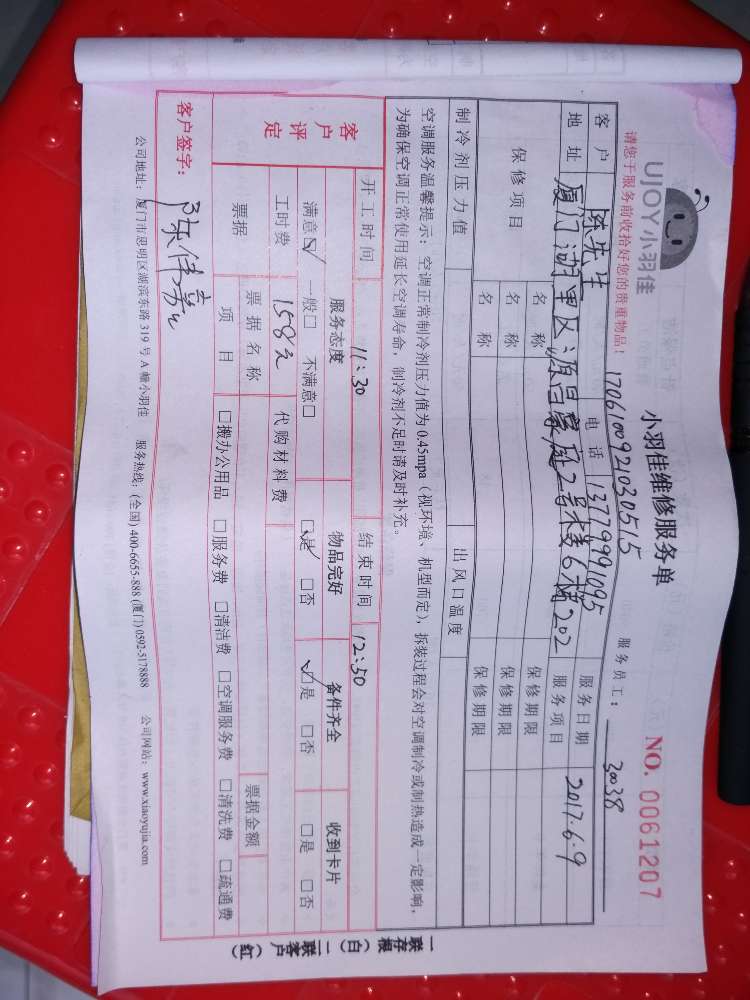 UJOY小羽佳
小羽佳维修服务单
NO. 0061207
请您于服务前收拾好您的贵重物品!
1706100921030515
服务员工: 30038
客户 陈先生 电话 13779991095 服务日期 2017.6.9
地址 厦门湖里区源昌豪庭2号楼6梯202 服务项目
保修项目 名称 保修期限
名称 保修期限
名称 保修期限
制冷剂压力值 出风口温度
空调服务温馨提示:空调正常制冷剂压力值为0.45mpa(视环境、机型而定),拆装过程会对空调制冷或制热造成一定影响,
为确保空调正常使用延长空调寿命,制冷剂不足时请及时补充。
开工时间 11:30 结束时间 12:50
客户评定 服务态度 物品完好 备件齐全 收到卡片
满意☑ 一般□ 不满意□ ☑是 □否 ☑是 □否 □是 □否
工时费 158元 代购材料费
票据 票据名称 票据金额
项目 □搬办公用品 □服务费 □清洁费 □空调服务费 □清洗费 □疏通费
客户签字:
公司地址:厦门市思明区湖滨东路319号A幢小羽佳 服务热线:(全国)400-6655-888 (厦门)0592-5178888 公司网站:www.xiaoyujia.com
一联存根(白)二联客户(红)